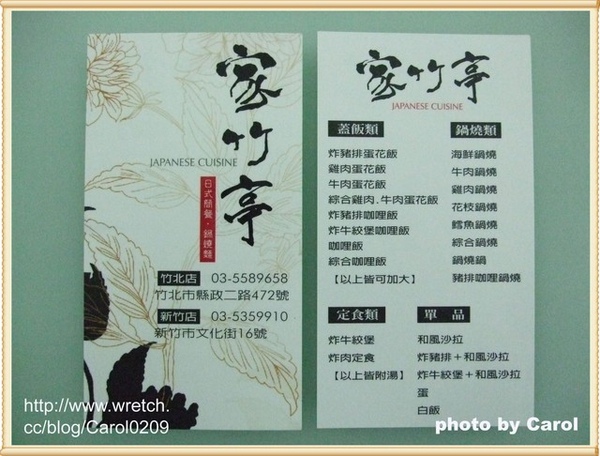 家竹亭
JAPANESE CUISINE
日式簡餐‧鍋燒麵
竹北店 03-5589658
竹北市縣政二路472號
新竹店 03-5359910
新竹市文化街16號
家竹亭
JAPANESE CUISINE
蓋飯類
炸豬排蛋花飯
雞肉蛋花飯
牛肉蛋花飯
綜合雞肉.牛肉蛋花飯
炸豬排咖哩飯
炸牛絞堡咖哩飯
咖哩飯
綜合咖哩飯
【以上皆可加大】
鍋燒類
海鮮鍋燒
牛肉鍋燒
雞肉鍋燒
花枝鍋燒
鱈魚鍋燒
綜合鍋燒
鍋燒鍋
豬排咖哩鍋燒
定食類
炸牛絞堡
炸肉定食
【以上皆附湯】
單品
和風沙拉
炸豬排+和風沙拉
炸牛絞堡+和風沙拉
蛋
白飯
http://www.wretch.
cc/blog/Carol0209
photo by Carol